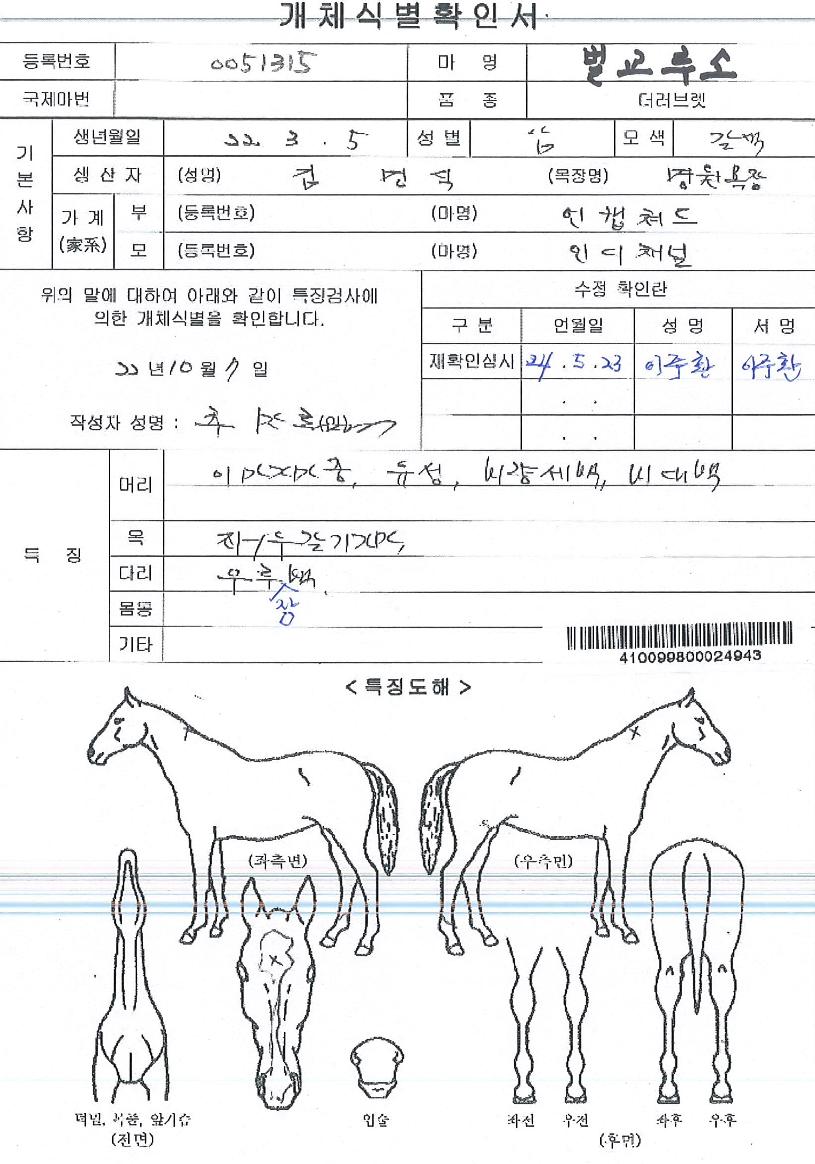 개체식별확인서
등록번호 0051315 마 명 벌교루소
국제마번 품 종 더러브렛
기본사항
생년월일 22. 3. 5 성별 암 모색 갈색
생산자 (성명) 김 식 (목장명) 목장
가계(家系) 부 (등록번호) (마명) 언캡쳐드
모 (등록번호) (마명) 인디채널
위의 말에 대하여 아래와 같이 특징검사에
의한 개체식별을 확인합니다.
22년 10월 7일
작성자 성명 : 추
수정 확인란
구분 연월일 성명 서명
재확인실시 24. 5. 23 이주환 이주환
. .
. .
특 징
머리 유성, 비량세백, 비대백
목
다리
잠
몸통
기타
410099800024943
< 특징도해 >
(좌측면) (우측면)
턱밑, 목줄, 앞가슴
(전면)
입술
좌전 우전 좌후 우후
(후면)